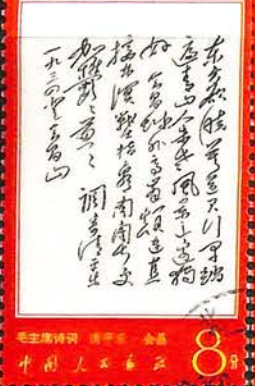 东方欲晓莫道君行早踏
遍青山人未老风景这边独
好会昌城外高峰颠连直
接东溟战士指看南粤更
加郁々葱々 调寄清平乐
一九三四年登会昌山
毛主席诗词 清平乐 会昌
中国人民邮政
8分